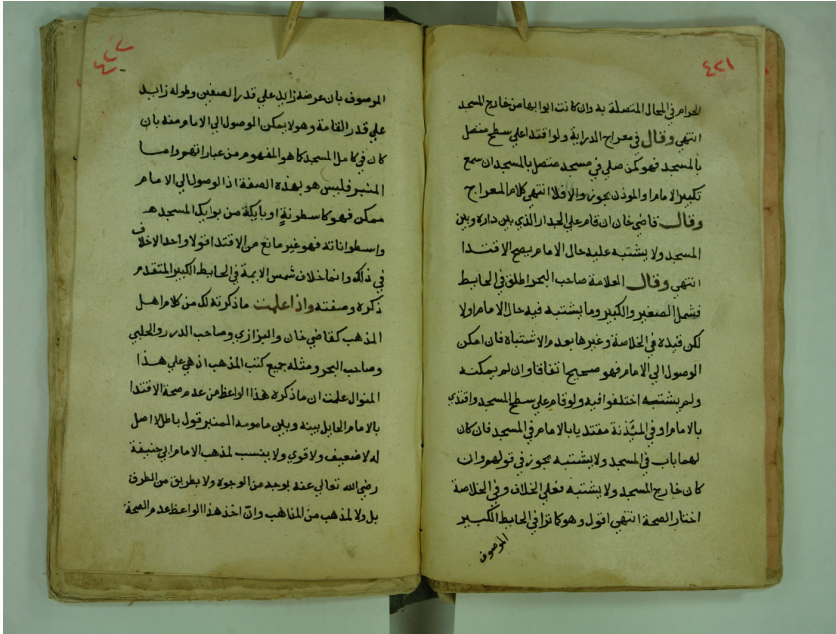 ٤٢١
الحرام في المحال المتصلة به وان كانت ابوابها من خارج المسجد
انتهي وقال في معراج الدراية ولو اقتدا علي سطح متصل
بالمسجد فهو كمن صلي في مسجد متصل بالمسجد ان سمع
تكبير الامام والموذن يجوز والافلا انتهي كلام المعراج
وقال قاضي خان ان قام علي الجدار الذي بين داره وبين
المسجد ولا يشتبه عليه حال الامام يصح الاقتدا
انتهي وقال العلامة صاحب البحر اطلق في الحايط
فشمل الصغير والكبير وما يشتبه فيه حال الامام اولا
لكن قيده في الخلاصة وغيرها بعدم الاشتباه فان امكن
الوصول الي الامام فهو صحيح اتفاقا وان لم يمكنه
ولم يشتبه اختلفوا فيه ولو قام علي سطح المسجد واقتدي
بالامام او في الميذنة مقتديا بالامام في المسجد فان كان
لهما باب في المسجد ولا يشتبه يجوز في قولهم وان
كان خارج المسجد ولا يشتبه فعلي الخلاف وفي الخلاصة
اختار الصحة انتهي اقول وهو كما تري في الحايط الكبير
الموصوف
٤٢٢
الموصوف بان عرضه زايد علي قدر الصفين وطوله زايد
علي قدر القامة وهو لا يمكن الوصول الي الامام منه بان
كان في كامل المسجد كما هو المفهوم من عباراتهم واما
المنبر فليس هو بهذه الصفة اذ الوصول الي الامام
ممكن فهو كاسطونة او بايكة من بوايك المسجد
واسطواناته فهو غير مانع من الاقتدا قولا واحد الاخلاف
في ذلك وانما خلاف شمس الايمة في الحايط الكبير المتقدم
ذكره وصفته واذا علمت ما ذكرته لك من كلام اهل
المذهب كقاضي خان والبزازي وصاحب الدرر والحلبي
وصاحب البحر ومثله جميع كتب المذهب اذ هي علي هذا
المنوال علمت ان ما ذكره هذا الواعظ من عدم صحة الاقتدا
بالامام الحايل بينه وبين مامومه المنبر قول باطل لا اصل
له لا ضعيف ولا قوي ولا ينسب لمذهب الامام ابي حنيفة
رضي الله تعالي عنه بوجه من الوجوه ولا بطريق من الطرق
بل ولا لمذهب من المذاهب وان اخذ هذا الواعظ عدم الصحة